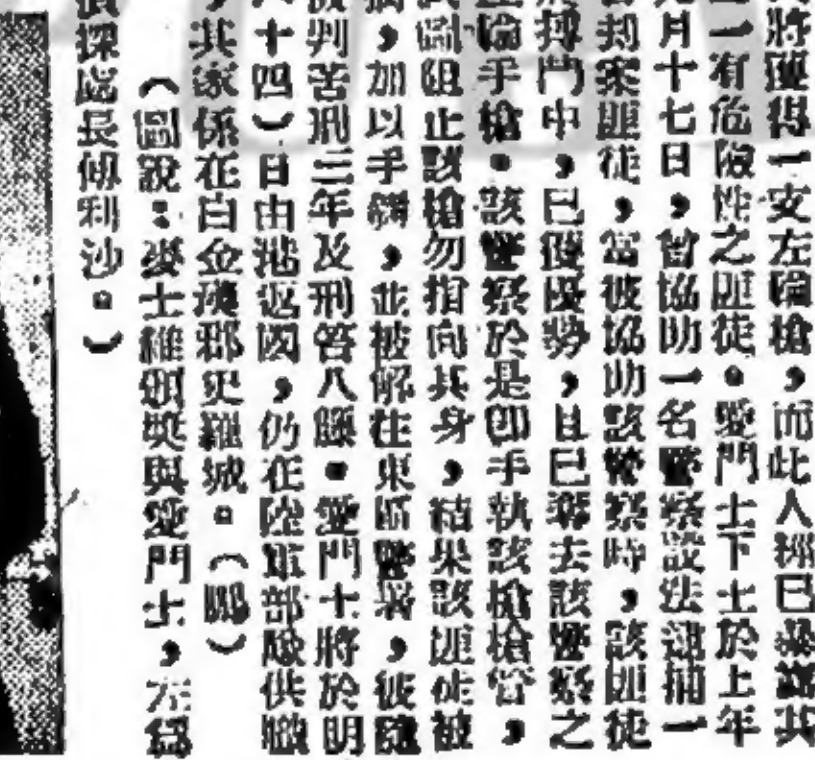 將獲得一支左輪槍,而此人經已承認其
一有危險性之匪徒。愛門士下士於上年
月十七日,曾協助一名警察設法逮捕一
劫案匪徒,當彼協助該警察時,該匪徒
搏鬥中,已優勢,且已奪去該警察之
輪手槍。該警察於是即手執該槍槍管,
圖阻止該槍勿指向其身,結果該匪徒被
,加以手鐐,並被解往東區警署,彼隨
判苦刑三年及刑笞八籐。愛門士將於明
十四)日由港返國,仍在陸軍部隊供職
其家係在白金漢郡史羅城。()
(圖說:麥士維頒獎與愛門士,左為
偵探處長利沙。)